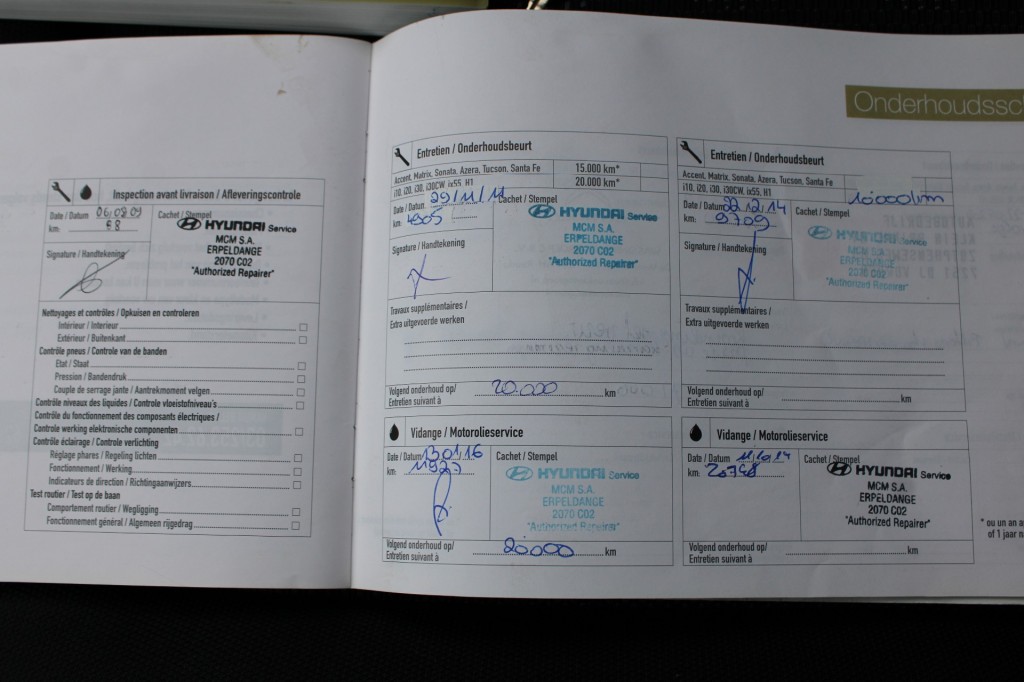 Onderhoudssc
Inspection avant livraison / Afleveringscontrole
Date / Datum 06/08/09
km:
Cachet / Stempel
HYUNDAI Service
MCM S.A.
ERPELDANGE
2070 C02
"Authorized Repairer"
Signature / Handtekening
Nettoyages et contrôles / Opkuisen en controleren
Intérieur / Interieur
Extérieur / Buitenkant
Contrôle pneus / Controle van de banden
Etat / Staat
Pression / Bandendruk
Couple de serrage jante / Aantrekmoment velgen
Contrôle niveaux des liquides / Controle vloeistofniveau's
Contrôle du fonctionnement des composants électriques /
Controle werking elektronische componenten
Contrôle éclairage / Controle verlichting
Réglage phares / Regeling lichten
Fonctionnement / Werking
Indicateurs de direction / Richtingaanwijzers
Test routier / Test op de baan
Comportement routier / Wegligging
Fonctionnement général / Algemeen rijgedrag
Entretien / Onderhoudsbeurt
Accent, Matrix, Sonata, Azera, Tucson, Santa Fe 15.000 km*
i10, i20, i30, i30CW, ix55, H1 20.000 km*
Date / Datum 29/11/11
km: 4905
Cachet / Stempel
HYUNDAI Service
MCM S.A.
ERPELDANGE
2070 C02
"Authorized Repairer"
Signature / Handtekening
Travaux supplémentaires /
Extra uitgevoerde werken
Volgend onderhoud op/
Entretien suivant à 20.000 km
Entretien / Onderhoudsbeurt
Accent, Matrix, Sonata, Azera, Tucson, Santa Fe
i10, i20, i30, i30CW, ix55, H1
Date / Datum 22.12.14
km: 9709
Cachet / Stempel
HYUNDAI Service
MCM S.A.
ERPELDANGE
2070 C02
"Authorized Repairer"
Signature / Handtekening
Travaux supplémentaires /
Extra uitgevoerde werken
Volgend onderhoud op/
Entretien suivant à km
Vidange / Motorolieservice
Date / Datum 13/01/16
km: 11927
Cachet / Stempel
HYUNDAI Service
MCM S.A.
ERPELDANGE
2070 C02
"Authorized Repairer"
Volgend onderhoud op/
Entretien suivant à 20000 km
Vidange / Motorolieservice
Date / Datum
km:
Cachet / Stempel
HYUNDAI Service
MCM S.A.
ERPELDANGE
2070 C02
"Authorized Repairer"
Volgend onderhoud op/
Entretien suivant à km
* ou un an a
of 1 jaar n